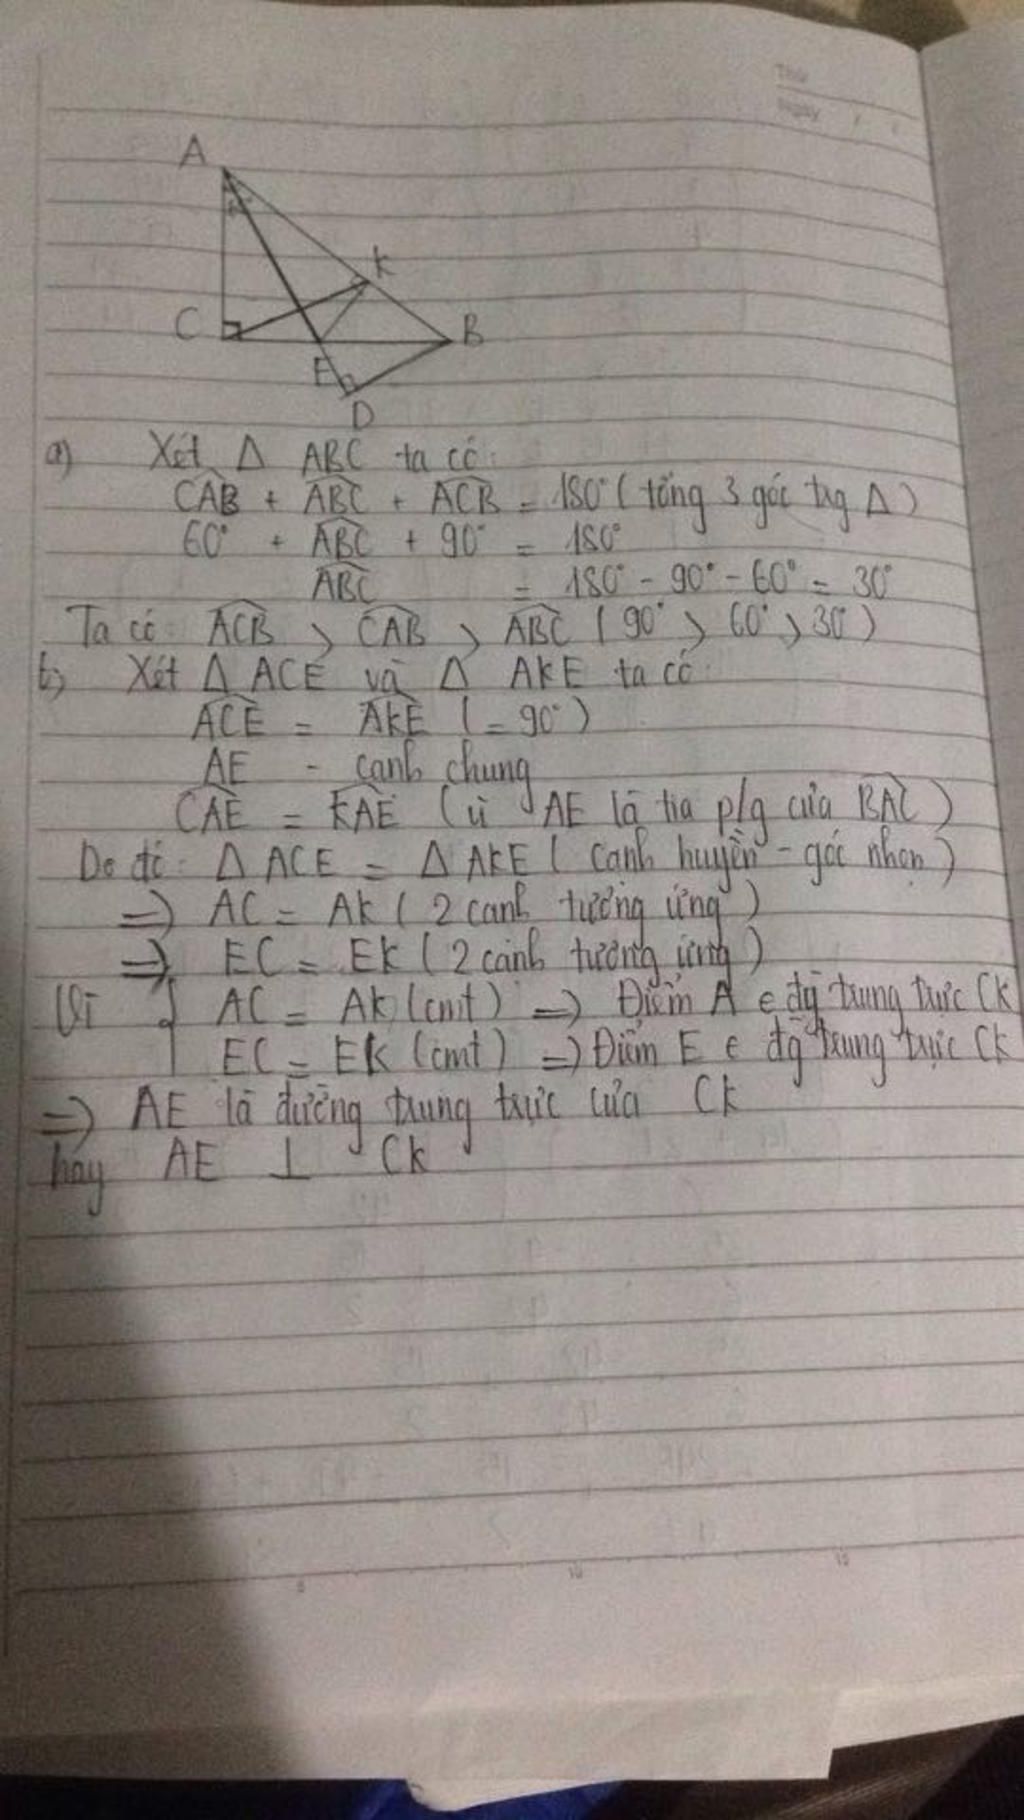 Thứ
Ngày / /
A
K
C
B
E
D
a) Xét Δ ABC ta có:
CAB + ABC + ACB = 180° ( tổng 3 góc tng Δ )
60° + ABC + 90° = 180°
ABC = 180° - 90° - 60° = 30°
Ta có: ACB > CAB > ABC ( 90° > 60° > 30° )
b) Xét Δ ACE và Δ AKE ta có:
ACE = AKE ( = 90° )
AE - cạnh chung
CAE = KAE (vì AE là tia p/g của BAC )
Do đó: Δ ACE = Δ AKE ( cạnh huyền - góc nhọn )
=> AC = AK ( 2 cạnh tương ứng )
=> EC = EK ( 2 cạnh tương ứng )
Vì { AC = AK (cmt) => Điểm A ∈ đg trung trực CK
EC = EK (cmt) => Điểm E ∈ đg trung trực CK
=> AE là đường trung trực của CK
hay AE ⊥ CK
5 10 15